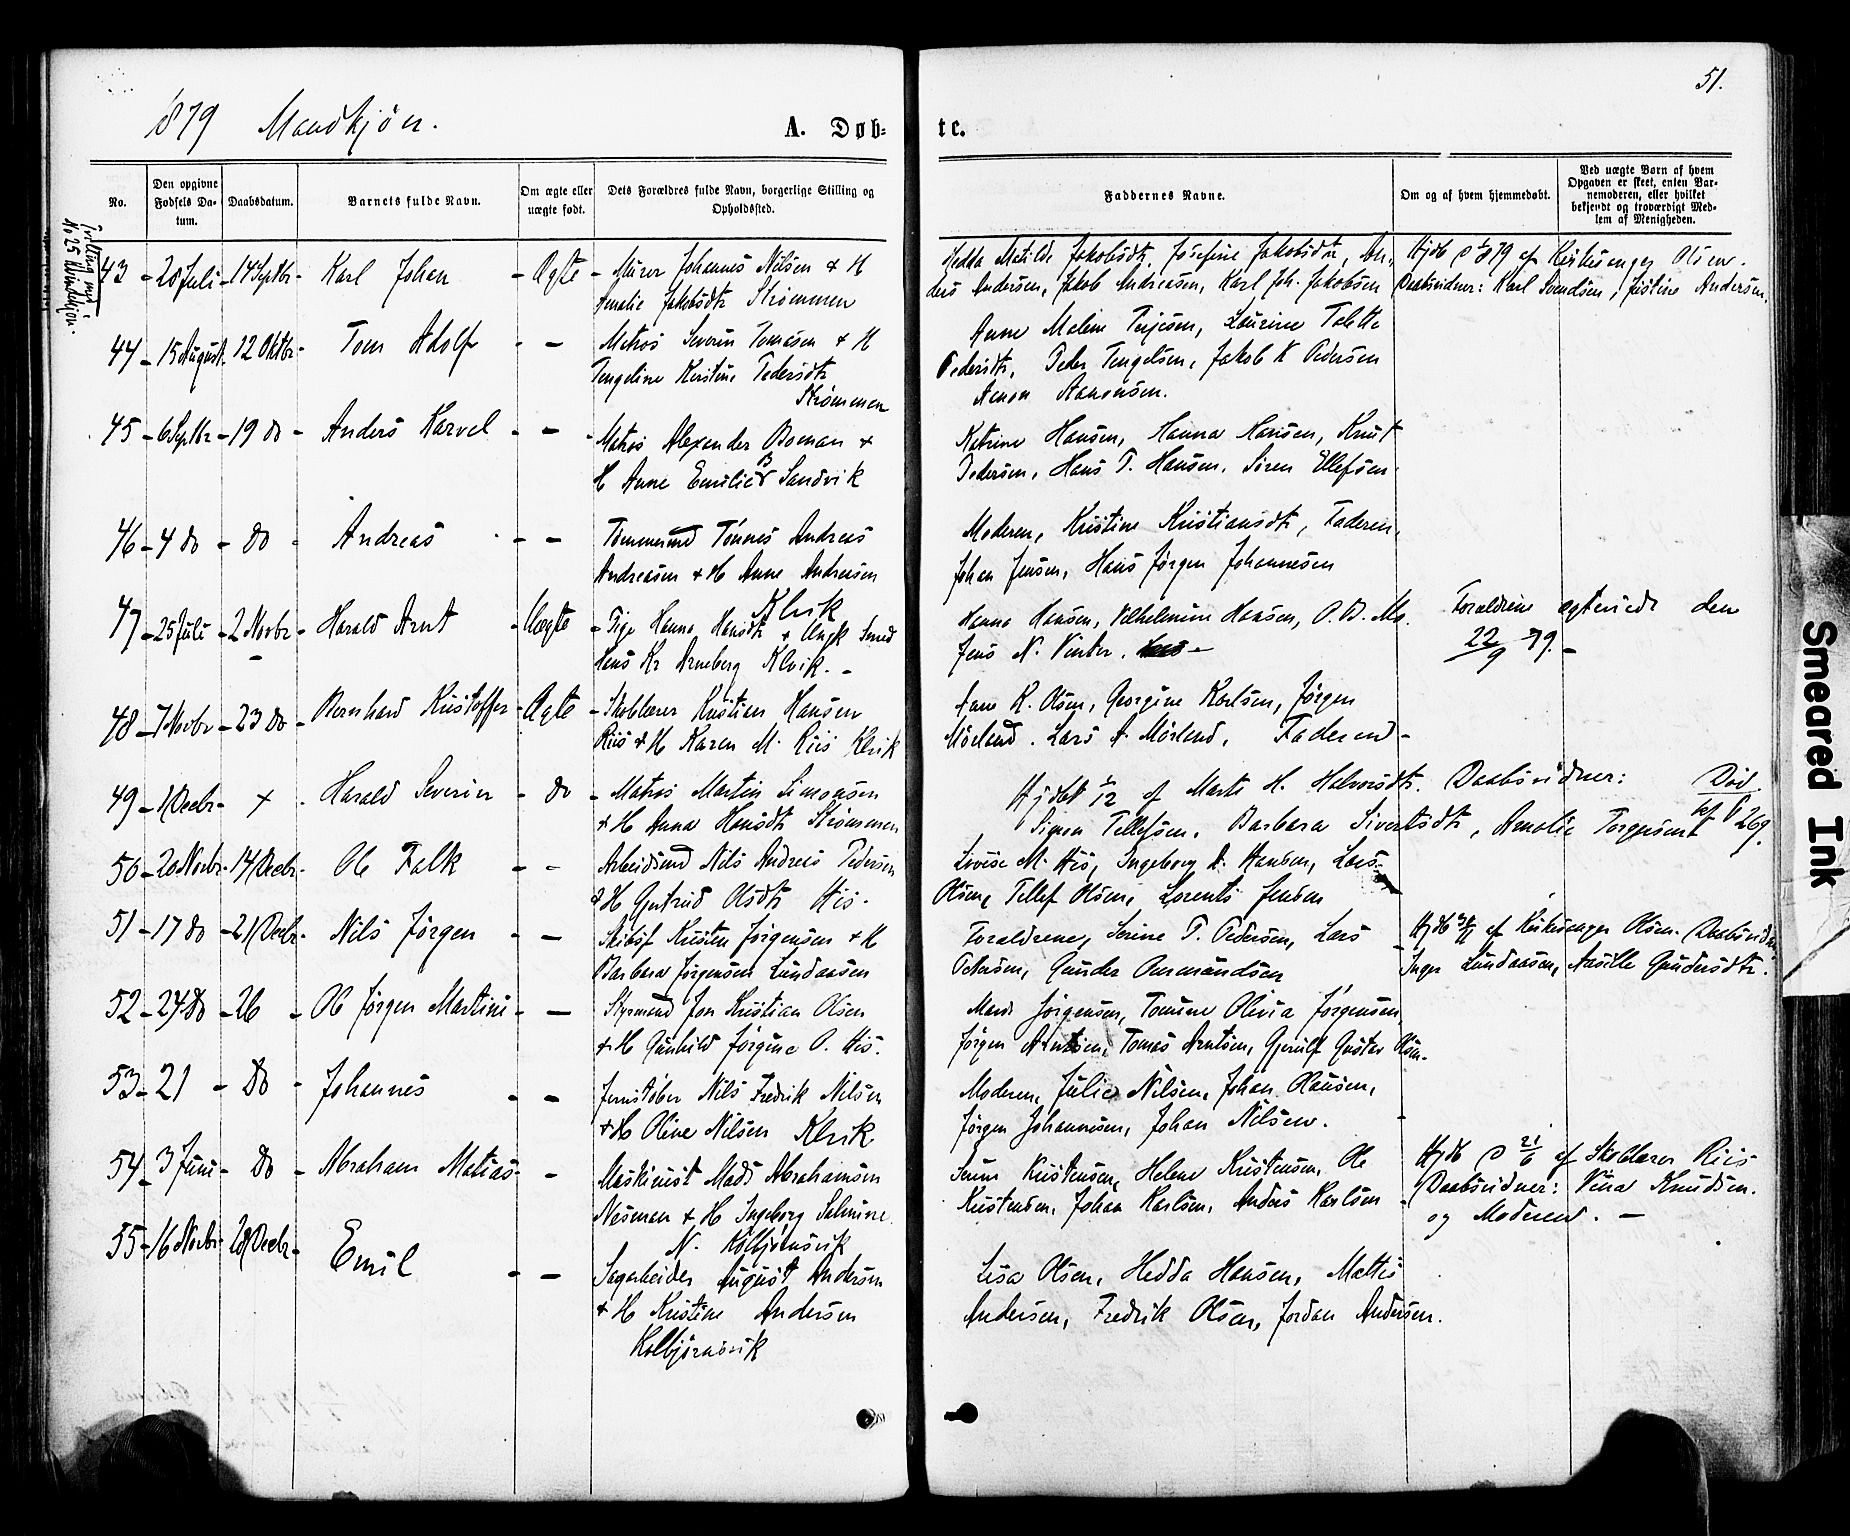 51.
1879 Mandkjøn.
A. Døb-
te.
No.
Den opgivne Fødsels Da-tum.
Daabsdatum.
Barnets fulde Navn.
Om ægte eller uægte født.
Dets Forældres fulde Navn, borgerlige Stilling og Opholdssted.
Faddernes Navne.
Om og af hvem hjemmedøbt.
Ved uægte Børn af hvem Opgaven er skeet, enten Bar-nemoderen, eller hvilket bekjendt og troværdigt Med-lem af Menigheden.
Tvilling med
No 25 Kvindekjøn.
43 - 28 Juli - 14 Septbr - Karl Johan - Ægte - Murer Johannes Nilsen & H
Amalie Jakobsdtr Strømmen
Hedda Matilde Jakobsdtr, Josefine Jakobsdtr, An-
ders Andersen, Jakob Andreasen, Karl Joh. Jakobsen
Hjdb 79 af Kirkesanger Olsen.
Daabsvidner: Karl Svendsen, Justine Andersen.
44 - 15 August - 12 Oktbr - Tom Adolf - - Matros Severin Tomasen & H
Tengeline Kirstine Pedersdtr
Strømmen
Anne Malene Terjesen, Laurine Tolette
Pedersdtr, Peder Tengelsen, Jakob K Pedersen
Aanon Aanonsen.
45 - 6 Septbr - 19 do - Anders Karvel - - Matros Alexander Boman &
H Anne Emilie B Sandvik
Katrine Hansen, Hanna Hansen, Knut
Pedersen, Hans T. Hansen, Søren Ellefsen.
46 - 4 do - do - Andreas - - Tømmermd Tønnes Andreas
Andreasen & H Anne Andreasen
Klvik
Moderen, Kristine Kristiansdtr, Faderen,
Johan Jensen, Hans Jørgen Johannesen
47 - 25 Juli - 2 Novbr - Harald Arnt - Uægte - Pige Hanna Hansdtr & Ungk Smed
Hans Kr Arneberg Klvik. -
Hanna Hansen, Vilhelmine Hansen, O. B. Mo.
Jens N. Vinter.
Forældrene ægteviede den
22/9 79. -
48 - 7 Novbr - 23 do - Bernhard Kristoffer - Ægte - Skolelærer Kristian Hansen
Riis & H Karen M. Riis Klvik
Anne K. Olsen, Georgine Karlsen, Jørgen
Mørland. Lars A. Mørland. Faderen -
49 - 1 Decbr - + - Harald Severin - do - Matros Martin Simonsen
& H Anna Hansdtr Strømmen
Hjdbt 1/12 af Marte H. Halvorsdtr. Daabsvidner:
Simon Tellefsen, Barbara Sivertsdtr, Amalie Torgersen
Død
269.
50 - 20 Novbr - 14 Decbr - Ole Falk - - Arbeidsmd Nils Andreas Pedersen
& H Gertrud Olsdtr His.
Lovise M. His, Ingeborg A. Hansen, Lars
Olsen, Tellef Olsen, Lorents Jensen
51 - 17 do - 21 Decbr - Nils Jørgen - - Skibsf Kristen Jørgensen & H
Barbara Jørgensen Lundaasen
Forældrene, Serine T. Pedersen, Lars
Petersen, Gunder Aanundsen
Hjdb af Kirkesanger Olsen. Daabsvidner
Inger Lundaasen, Aasille Gundersdtr.
52 - 24 do - 26 - Ole Jørgen Martinius - - Styrmand Jon Kristian Olsen
& H Gunhild Jørgine O. His.
Maren Jørgensen, Tomine Olivia Jørgensen,
Jørgen Arntsen, Tomas Arntsen, Gjerulf Gustav Olsen.
53 - 21 - do - Johannes - - Jernstøber Nils Fredrik Nilsen
& H Oline Nilsen Klvik
Moderen, Julie Nilsen, Johan Olausen,
Jørgen Johannesen, Johan Nilsen.
54 - 3 Juni - do - Abraham Matias - - Maskinist Mads Abrahamsen
Nesman & H Ingeborg Salmine
N. Kolbjørnsvik
Kristensen, Helene Kristensen, Ole
Kristensen, Johan Karlsen, Anders Karlsen
Hjdb 21/6 af Skolelærer Riis
Daabsvidner: Vina Knudsen.
og Moderen. -
55 - 16 Novbr - 28 Decbr - Emil - - Sagarbeider August Andersen
& H Kristine Andersen
Kolbjørnsvik
Lisa Olsen, Hedda Hansen, Mattis
Andersen, Fredrik Olsen, Jordan Andersen.
Smeared Ink